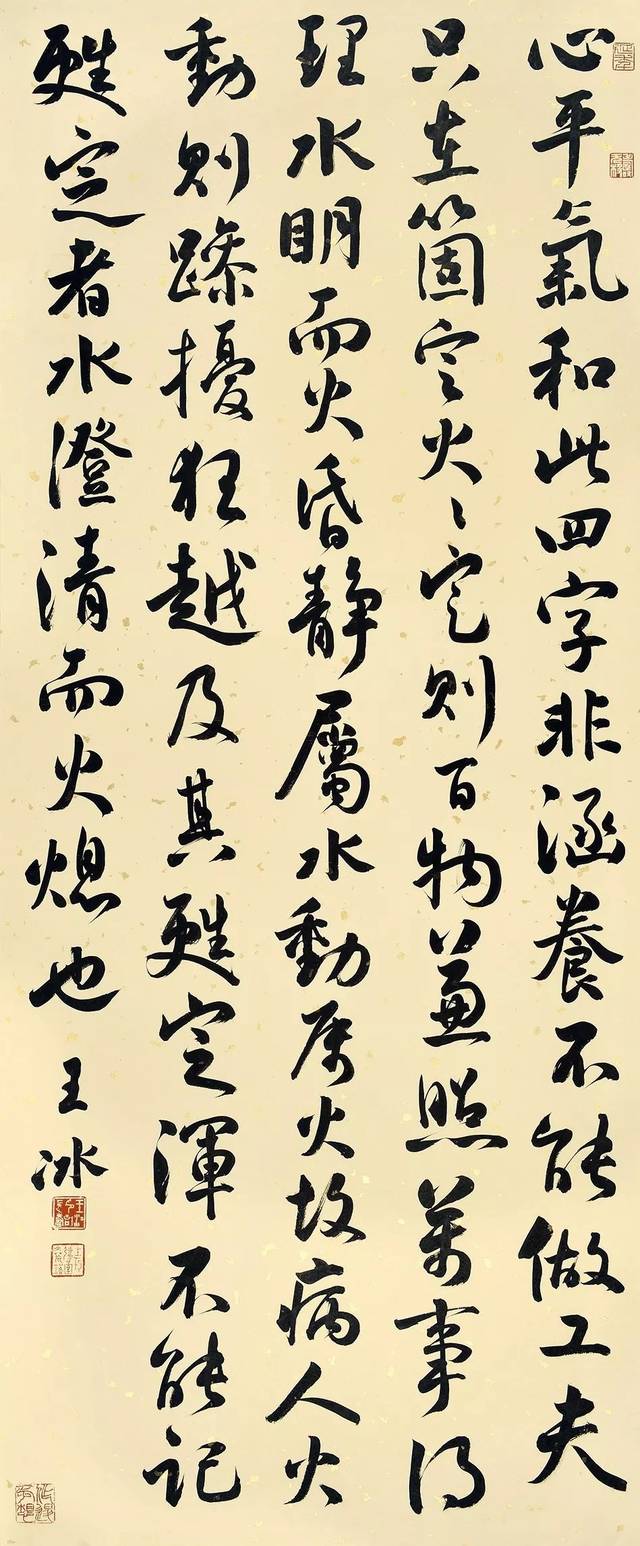 心平氣和此四字非涵養不能做工夫
只在箇定火〻定則百物兼照萬事得
理水明而火昏静屬水動属火故病人火
動則躁擾狂越及其甦定渾不能記
甦定者水澄清而火熄也 王冰